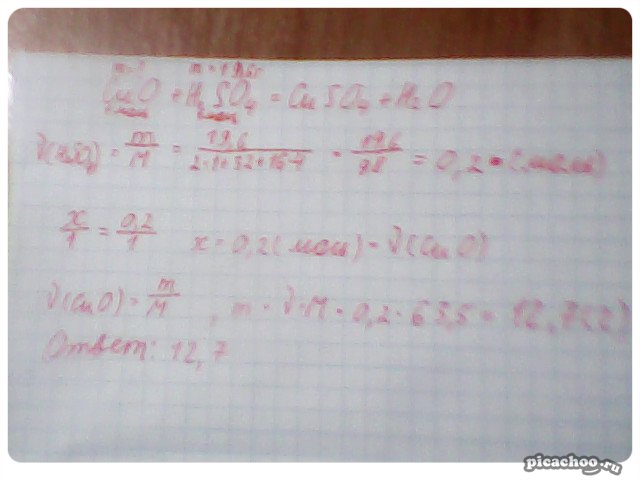 m-? m=19,6г
CuO + H₂SO₄ = CuSO₄ + H₂O
1моль 1моль
ν(H₂SO₄) = m/M = 19,6/(2·1+32+16·4) = 19,6/98 = 0,2 (моль)
x/1 = 0,2/1 x = 0,2(моль) = ν(CuO)
ν(CuO) = m/M , m = ν·M = 0,2·63,5 = 12,7(г)
Ответ: 12,7
picachoo.ru